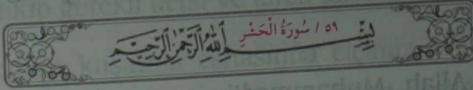 ٥٩ / سُورَةُ الْحَشْرِ
بِسْمِ اللّٰهِ الرَّحْمٰنِ الرَّحِيمِ